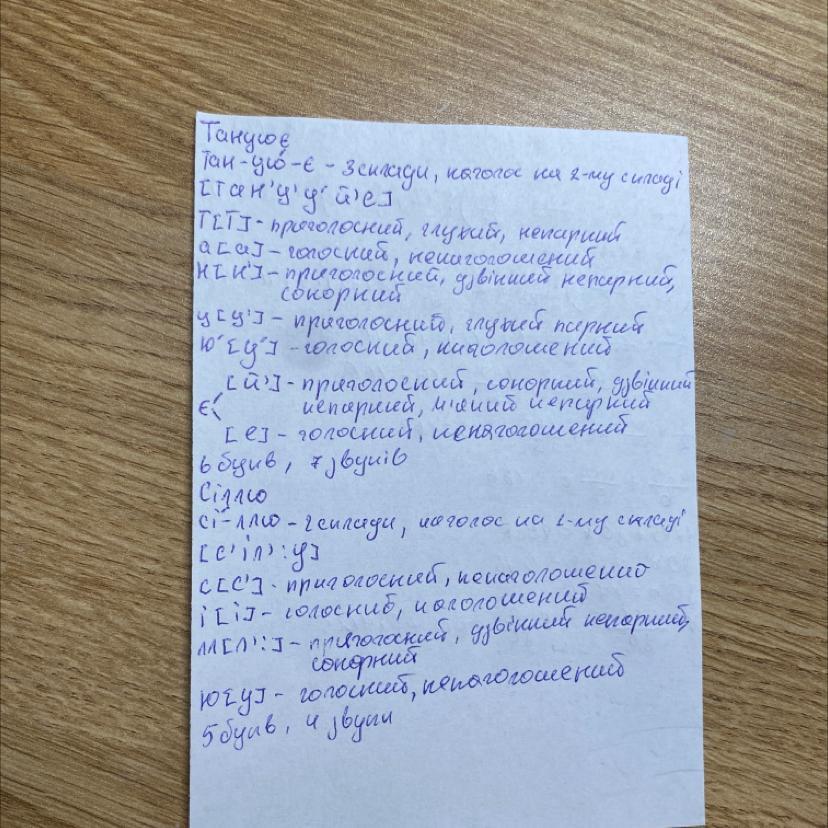 Танцює
Тан-цю́-є - 3 склади, наголос на 2-му складі
[т а н' ц' у́ й' е]
т[т] - приголосний, глухий, непарний
а[а] - голосний, ненаголошений
н[н'] - приголосний, дзвінкий непарний,
сонорний
ц[ц'] - приголосний, глухий парний
ю́ [у́] - голосний, наголошений
[й'] - приголосний, сонорний, дзвінкий
є
непарний, м'який непарний
[е] - голосний, ненаголошений
6 букв, 7 звуків
Сіллю
сі́-ллю - 2 склади, наголос на 1-му складі
[с' і л' : у]
с[с'] - приголосний, ненаголошений
і [і] - голосний, наголошений
лл[л':] - приголосний, дзвінкий непарний,
сонорний
ю[у] - голосний, ненаголошений
5 букв, 4 звуки